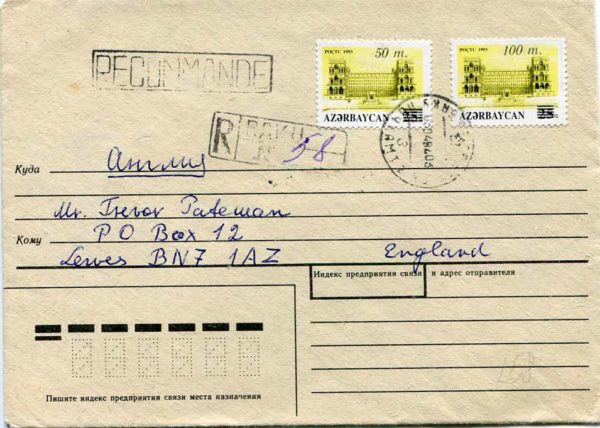 RECOMMANDE
POÇTU 1993 50 m.
AZƏRBAYCAN 25
POÇTU 1993 100 m.
AZƏRBAYCAN 25
R BAKU
№ 58
Куда Англия
Mr. Trevor Pateman
Кому PO Box 12
Lewes BN7 1AZ England
Индекс предприятия связи и адрес отправителя
Пишите индекс предприятия связи места назначения
158